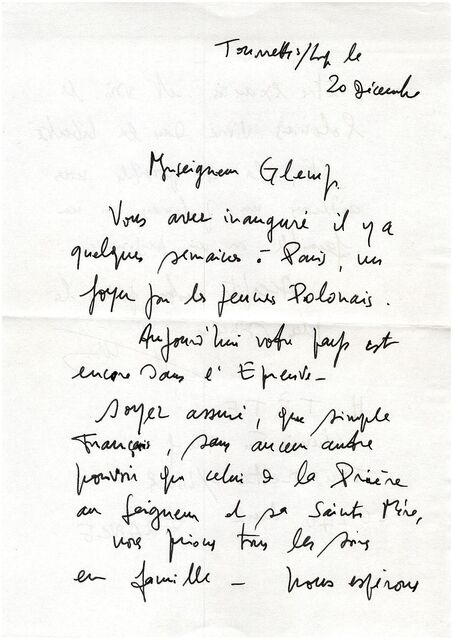 Tourrettes/Loup le
20 Décembre
Monseigneur Glemp,
Vous avez inauguré il y a
quelques semaines à Paris, un
foyer pour les jeunes Polonais.
Aujourd'hui votre pays est
encore dans l'Epreuve_
Soyez assuré, que simple
Français, sans aucun autre
pouvoir que celui de la Prière
au Seigneur et sa Sainte Mère,
nous prions tous les soirs
en famille _ Nous espérons